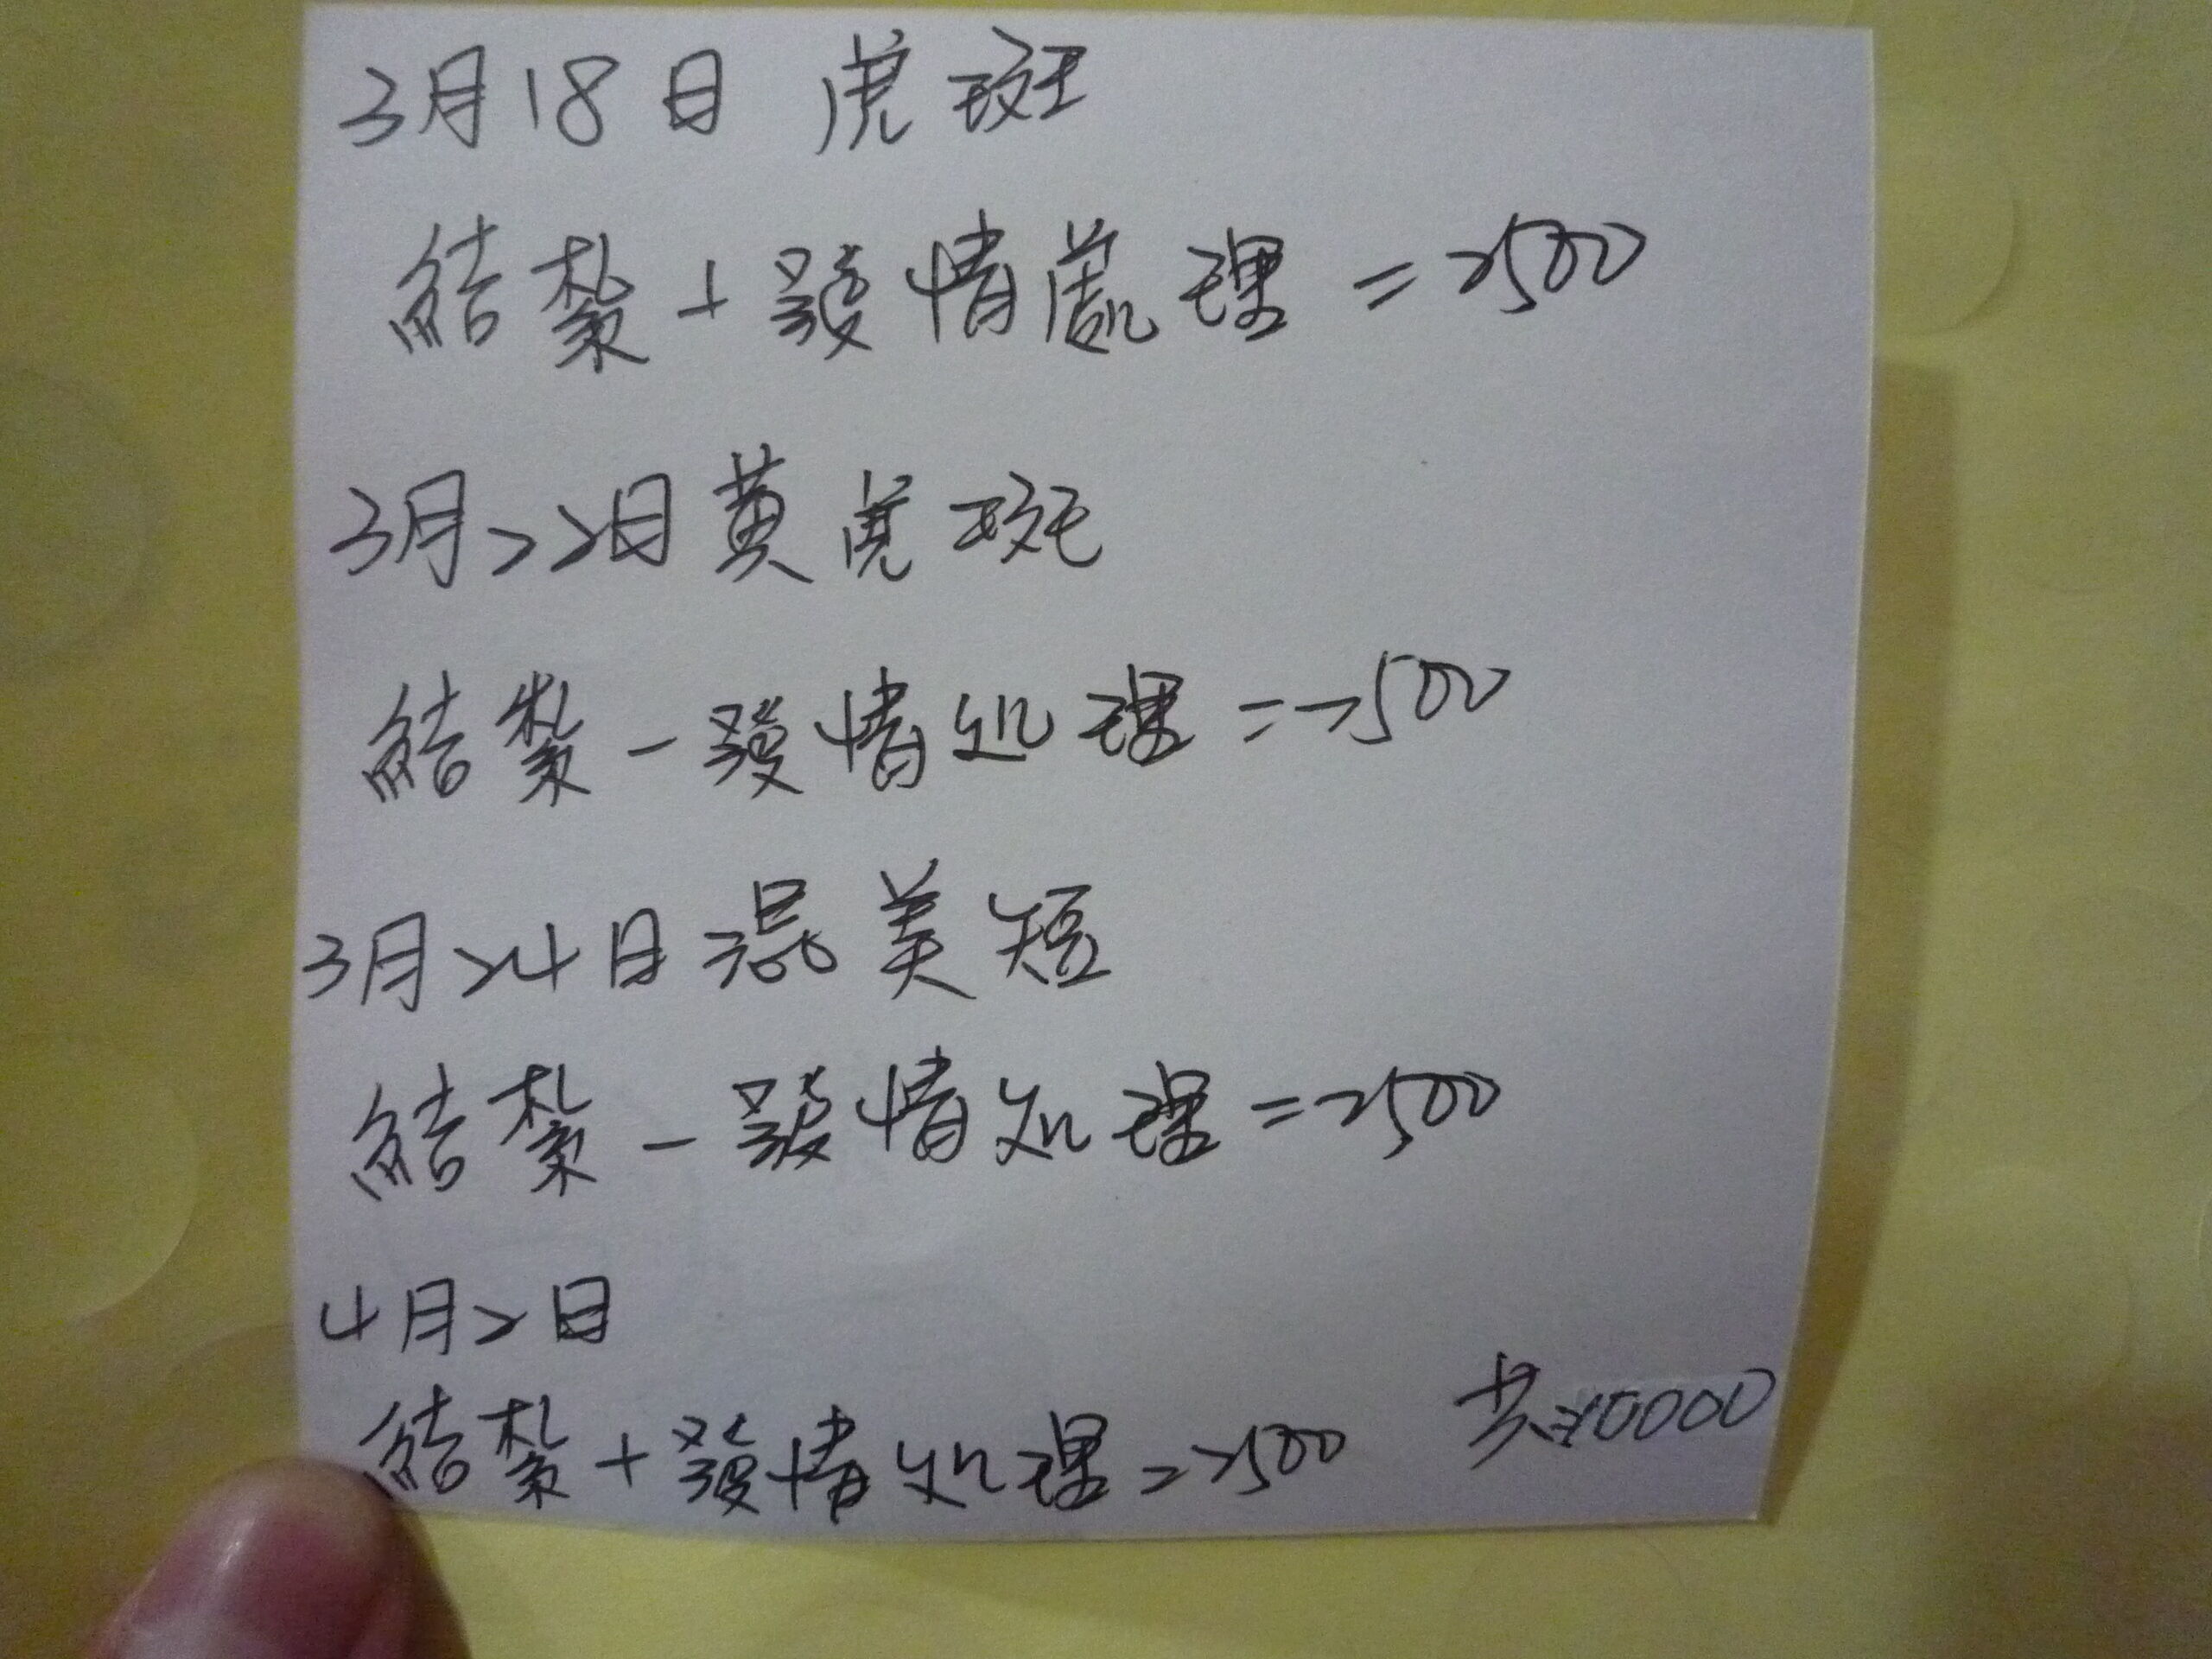 3月18日 虎斑
結紮+發情處理=2500
3月22日黃虎斑
結紮-發情処理=2500
3月24日混美短
結紮-發情処理=2500
4月2日
結紮+發情処理=2500 共10000